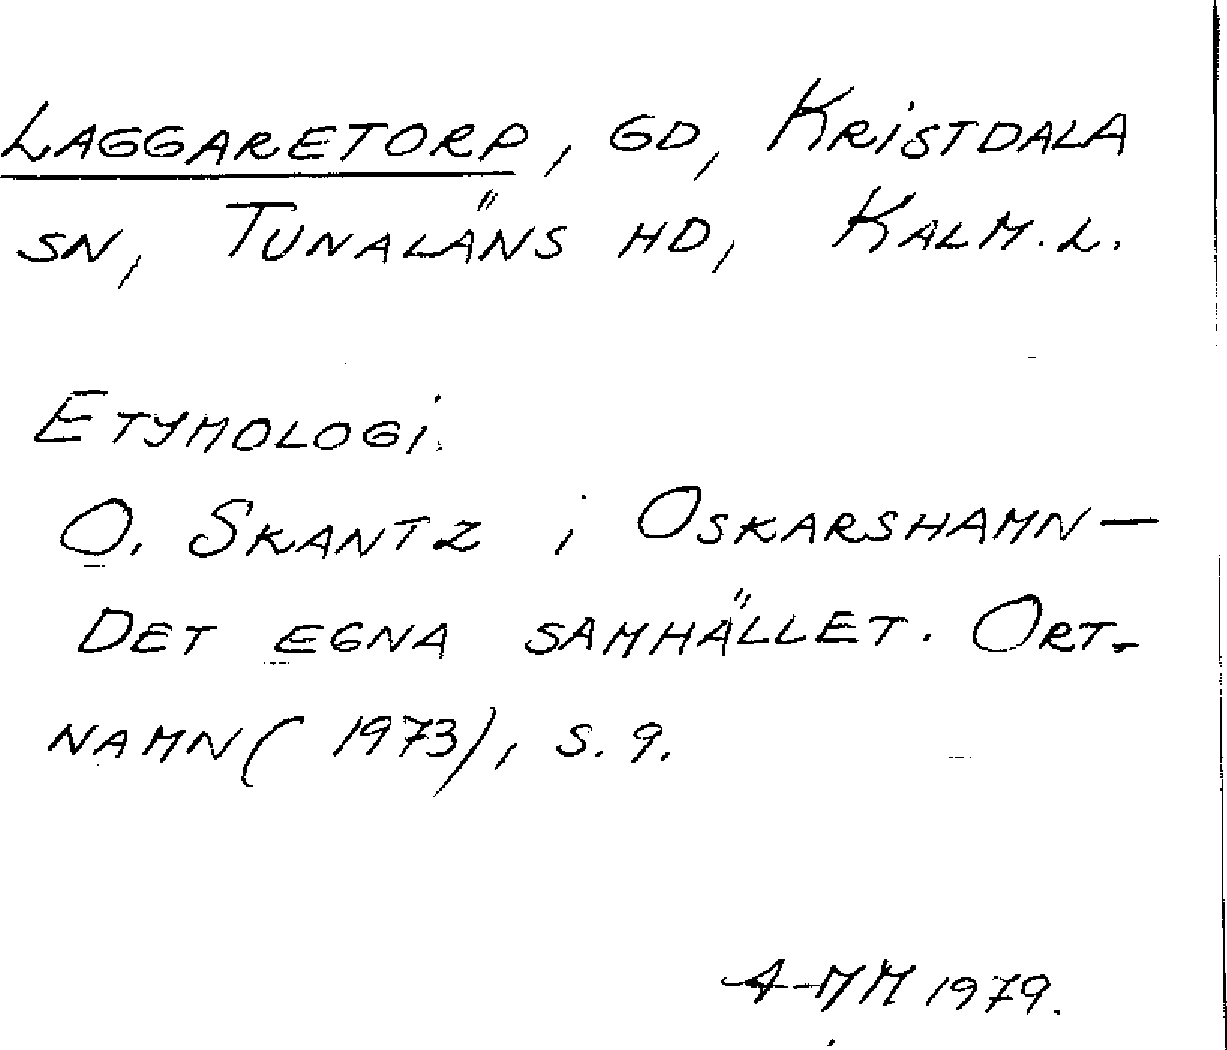 LAGGARETORP, GD, KRISTDALA
SN, TUNALÄNS HD, KALM.L.
ETYMOLOGI.
O. SKANTZ i OSKARSHAMN—
DET EGNA SAMHÄLLET. ORT-
NAMN (1973), S. 9.
A-MM 1979.